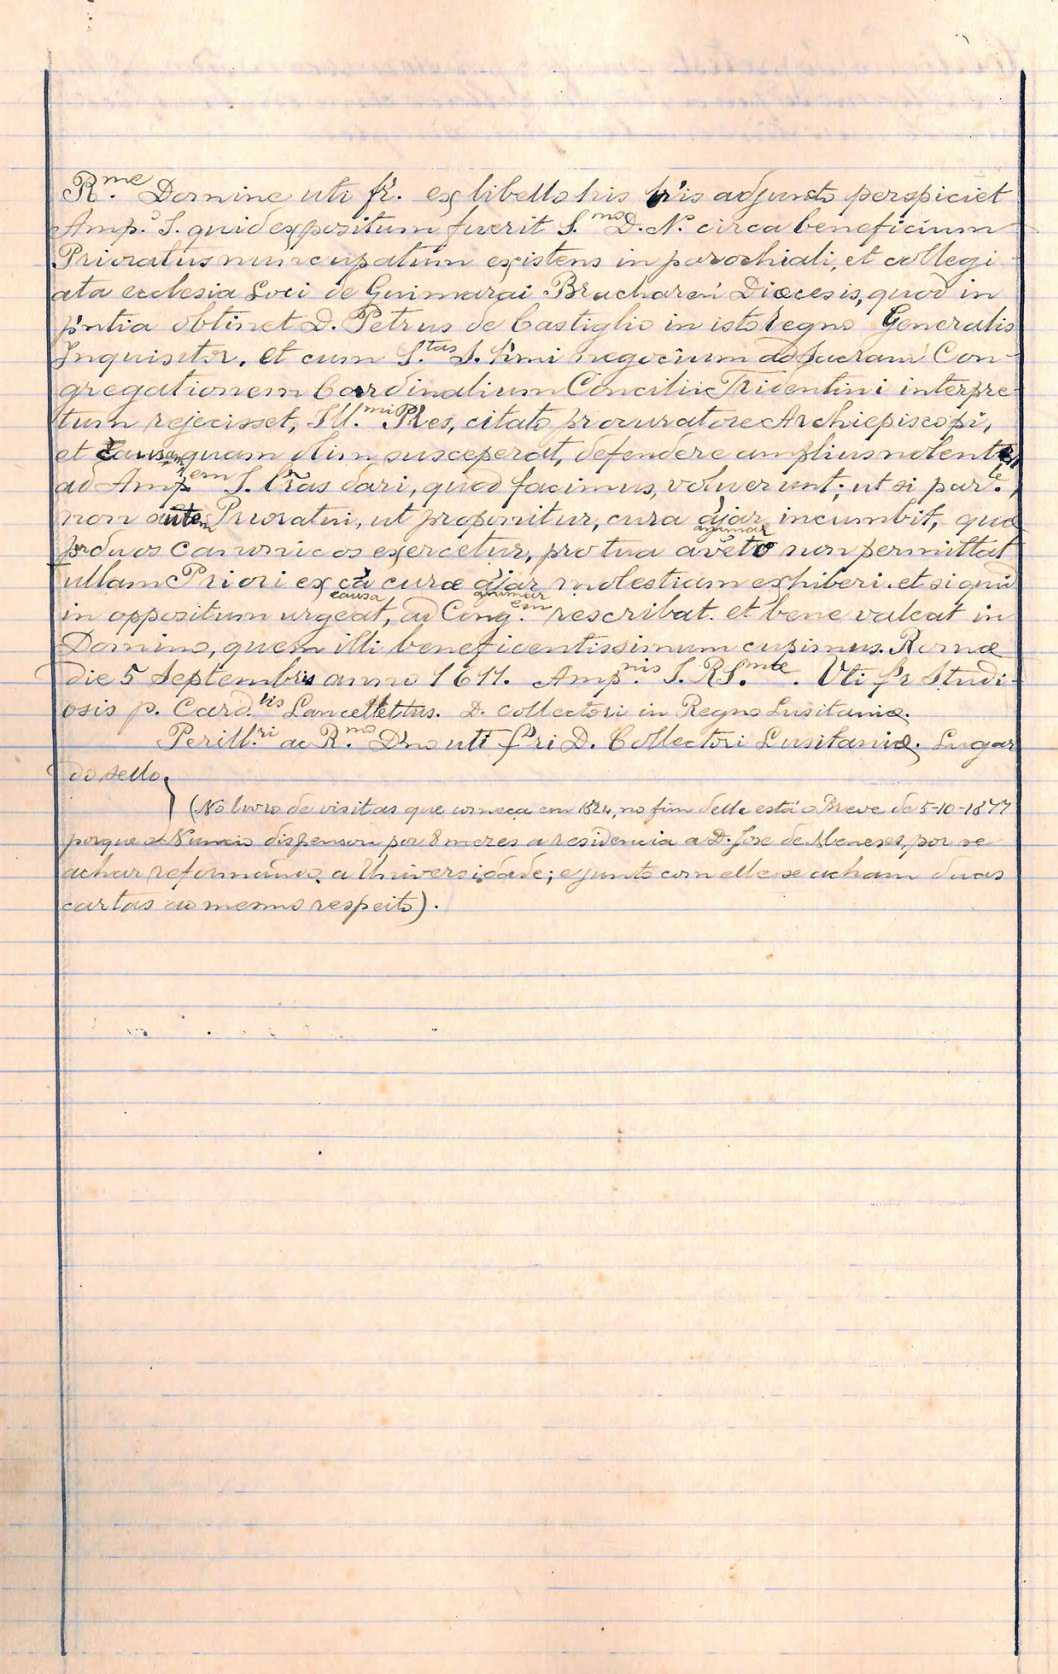 R.me Domine uti fr. ex libello his lr̃is adjuncto perspiciet
Amp.º S. quid expositum fuerit S.mo D. N.º circa beneficium
Prioratus nuncupatum existens in parochiali, et collegi-
ata ecclesia Loci de Guimarai Bracharen̄ Diœcesis, quod in
p̃ntia obtinet D. Petrus de Castiglio in isto regno Generalis
Inquisitor. et cum S.tas S. hm̃i negocium ad Sacram Con-
gregationem Cardinalium Concilii Tridentini interpre-
tum rejecisset, Ill.mi PP.es, citato procuratore Archiepiscopi,
et causam quam olim susceperat, defendere amplius nolente,
ad Amp.em S. lr̃as dari, quod facimus, voluerunt; ut si par.te,
non autem Prioratui, ut proponitur, cura aĩar animar incumbit, quæ
per duos canonicos exercetur, pro tua avcto non permittat
ullam Priori ex cã causa curæ aĩar animar molestiam exhiberi. et si quid
in oppositum urgeat, ad Cong.em rescribat. et bene valeat in
Domino, quem illi beneficentissimum cupimus. Romæ
die 5 Septembris anno 1611. Amp.nis S. RS.mæ. Uti fr Studi-
osis p. Card.lis Lancellettus. D. Collectori in Regno Lusitaniæ.
Perill.ri ac R.mo Dno uti fri D. Collectori Lusitaniæ. Lugar
do sello.
(No livro de visitas que começa em 1824, no fim delle está o Breve de 5-10-1877
porque o Nuncio dispensou por 8 mezes a residencia a D. José de Menezes, por se
achar reformando a Universidade; e junto com elle se acham duas
cartas ao mesmo respeito).